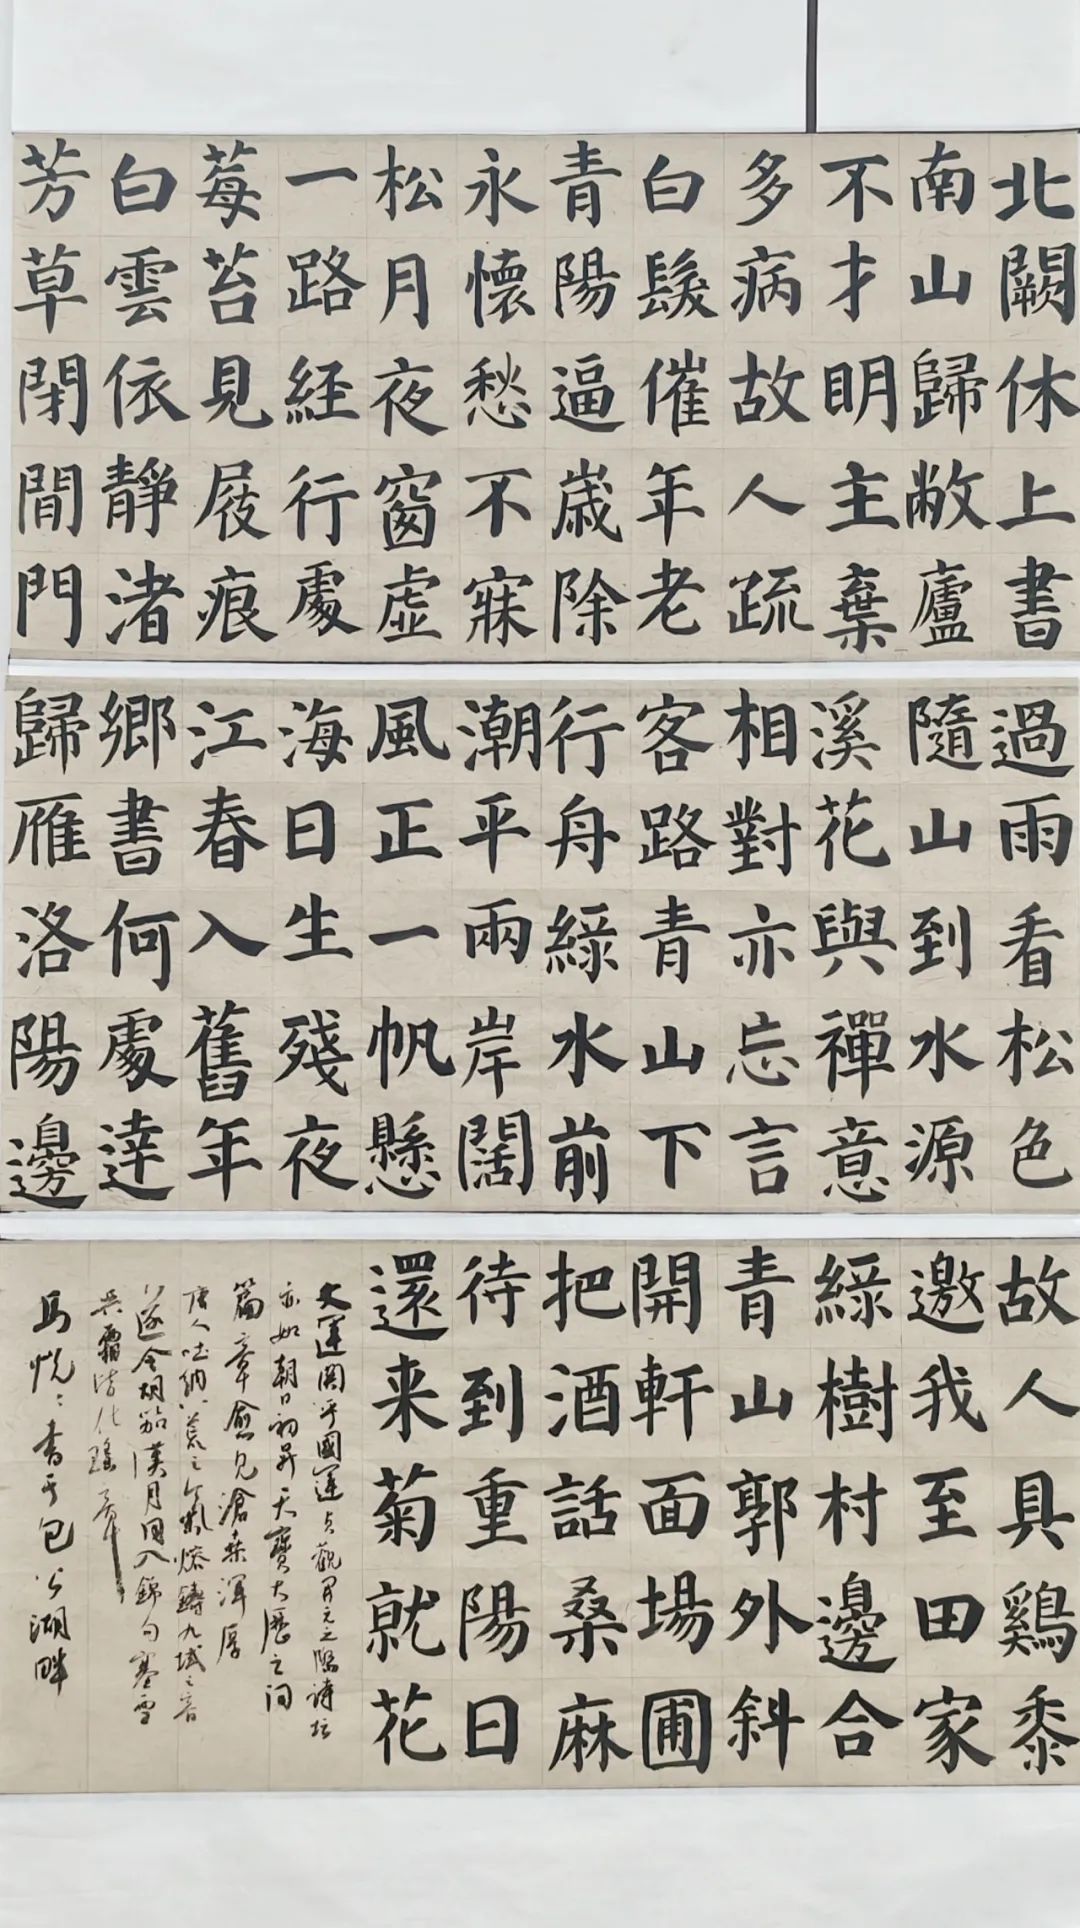 北闕休上書
南山歸敝廬
不才明主棄
多病故人疏
白髮催年老
青陽逼歲除
永懷愁不寐
松月夜窗虛
一路經行處
莓苔見屐痕
白雲依靜渚
芳草閉閒門
過雨看松色
隨山到水源
溪花與禪意
相對亦忘言
客路青山下
行舟綠水前
潮平兩岸闊
風正一帆懸
海日生殘夜
江春入舊年
鄉書何處達
歸雁洛陽邊
故人具鷄黍
邀我至田家
綠樹村邊合
青山郭外斜
開軒面場圃
把酒話桑麻
待到重陽日
還来菊就花
文運關乎國運貞觀開元之際詩壇
亦如朝日初昇天寶大歷之間
篇章愈見滄桑渾厚
唐人吐納八荒之氣熔鑄九域之音
遂令胡笳漢月同入錦句塞雪
吳霜皆化瑤章
馬悅書于包公湖畔